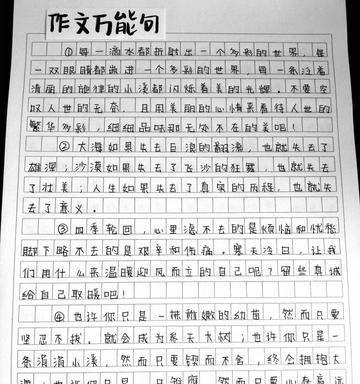 作文万能句
①每一滴水都折射出一个多彩的世界，每
一双眼睛都渗进一个多彩的世界，每一条泛着
清丽的脸的小溪都闪烁着美的光辉。不要空
叹人世的无奈，且用美丽的心情来看待人世的
繁华多彩，细细品味那无处不在的美吧！
②大海如果失去巨浪的翻滚，也就失去了
雄浑；沙漠如果失去了飞沙的狂舞，也就失去
了壮美；人生如果失去了真实的历程，也就失
去了意义。
③四季轮回，心里滤不去的是烦恼和忧愁
脚下略不去的是艰辛和伤痛。寒天冷日，让我
们用什么来温暖迎风而立的自己呢？留些真诚
给自己取暖吧！
④也许你只是一株稚嫩的幼苗，然而只要
坚忍不拔，就会成为参天大树；也许你只是一
条涓涓小溪，然而只要锲而不舍，终会拥抱大